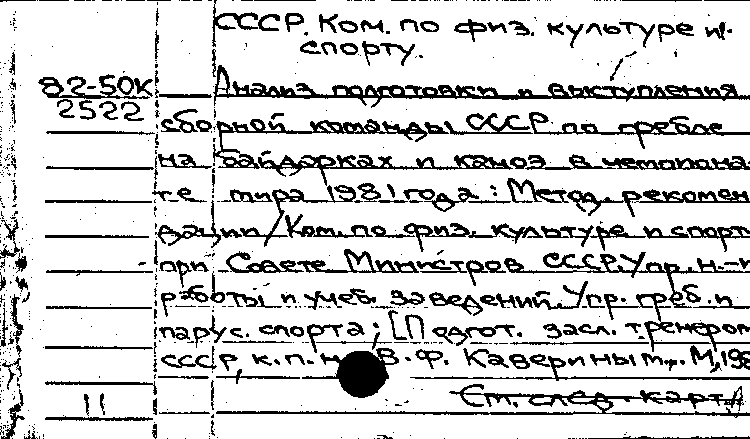 СССР. Ком. по физ. культуре и
спорту.
82-50К
2522
Анализ подготовки и выступления
сборной команды СССР по гребле
на байдарках и каноэ в чемпиона-
те мира 1981 года: Метод. рекомен
дации/Ком. по физ. культуре и спорту
при Совете Министров СССР, Упр. н.-и
работы и учеб. заведений, Упр. греб. и
парус. спорта; [Подгот. засл. тренером
СССР, к.п.н. В.Ф. Кавериным]. М., 198
См. след. карт
11